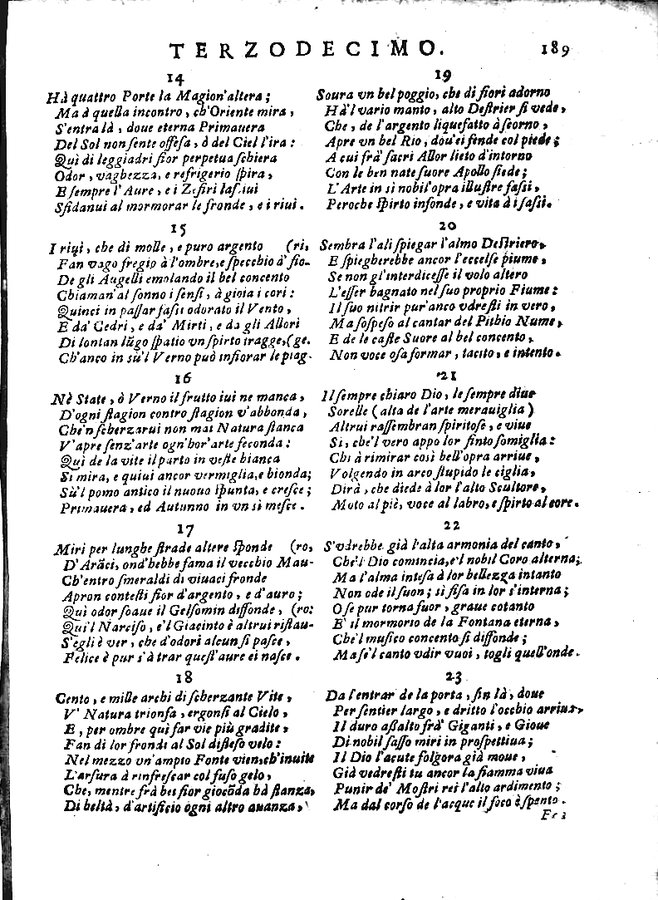 TERZODECIMO. 189
14
Hà quattro Porte la Magion'altera;
Ma à quella incontro, ch'Oriente mira,
S'entra là, doue eterna Primauera
Del Sol non sente offesa, ò del Ciel l'ira:
Quì di leggiadri fior perpetua schiera
Odor, vaghezza, e refrigerio spira,
E sempre l'Aure, e i Zefiri lasciui
Sfidanui al mormorar le fronde, e i riui.
15
I riui, che di molle, e puro argento (ri,
Fan vago fregio à l'ombre, e specchio à fio-
De gli Augelli emolando il bel concento
Chiaman'al sonno i sensi, à gioia i cori:
Quinci in passar fassi odorato il Vento,
E da' Cedri, e da' Mirti, e da gli Allori
Di lontan lũgo spatio vn spirto tragge, (ge.
Ch'anco in sù'l Verno può infiorar le piag-
16
Nè State, ò Verno il frutto iui ne manca,
D'ogni stagion contro stagion v'abbonda,
Che'n scherzarui non mai Natura stanca
V'apre senz'arte ogn'hor'arte feconda:
Quì de la vite il parto in veste bianca
Si mira, e quiui ancor vermiglia, e bionda;
Sù'l pomo antico il nuouo spunta, e cresce;
Primauera, ed Autunno in vn si mesce.
17
Miri per lunghe strade altere sponde (ro,
D'Arãci, ond'hebbe fama il vecchio Mau-
Ch'entro smeraldi di viuaci fronde
Apron contesti fior d'argento, e d'auro;
Quì odor soaue il Gelsomin diffonde, (ro:
Quì'l Narciso, e'l Giacinto è altrui ristau-
S'egli è ver, che d'odori alcun si pasce,
Felice è pur s'à trar quest'aure ei nasce.
18
Cento, e mille archi di scherzante Vite,
V' Natura trionfa, ergonsi al Cielo,
E, per ombre quì far vie più gradite,
Fan di lor frondi al Sol disteso velo:
Nel mezzo vn'ampio Fonte vien, ch'inuite
L'arsura à rinfrescar col fuso gelo,
Che, mentre frà bei fior giocõda hà stanza,
Di beltà, d'artificio ogni altro auanza,
19
Soura vn bel poggio, che di fiori adorno
Hà'l vario manto, alto Destrier si vede,
Che, de l'argento liquefatto à scorno,
Apre vn bel Rio, dou'ei finde col piede;
A cui frà sacri Allor lieto d'intorno
Con le ben nate suore Apollo siede;
L'Arte in sì nobil'opra illustre fassi,
Peroche spirto infonde, e vita à i sassi.
20
Sembra l'ali spiegar l'almo Destriero,
E spiegherebbe ancor l'eccelse piume,
Se non gl'interdicesse il volo altero
L'esser bagnato nel suo proprio Fiume:
Il suo nitrir pur'anco vdresti in vero,
Ma sospeso al cantar del Pithio Nume,
E de le caste Suore al bel concento,
Non voce osa formar, tacito, e intento.
21
Il sempre chiaro Dio, le sempre diue
Sorelle (alta de l'arte merauiglia)
Altrui rassembran spiritose, e viue
Sì, che'l vero appo lor finto somiglia:
Chi à rimirar così bell'opra arriue,
Volgendo in arco stupido le ciglia,
Dirà, che diede à lor l'alto Scultore,
Moto al piè, voce al labro, e spirto al core.
22
S'vdrebbe già l'alta armonia del canto,
Che'l Dio comincia, e'l nobil Coro alterna;
Ma l'alma intesa à lor bellezza intanto
Non ode il suon; sì fisa in lor s'interna;
O se pur torna fuor, graue cotanto
E' il mormorio de la Fontana eterna,
Che'l musico concento si diffonde;
Ma se'l canto vdir vuoi, togli quell'onde.
23
Da l'entrar de la porta, fin là, doue
Per sentier largo, e dritto l'occhio arriua,
Il duro assalto frà Giganti, e Gioue
Di nobil sasso miri in prospettiua;
Il Dio l'acute folgora già moue,
Già vedresti tu ancor la fiamma viua
Punir de' Mostri rei l'alto ardimento;
Ma dal corso de l'acque il foco è spento.